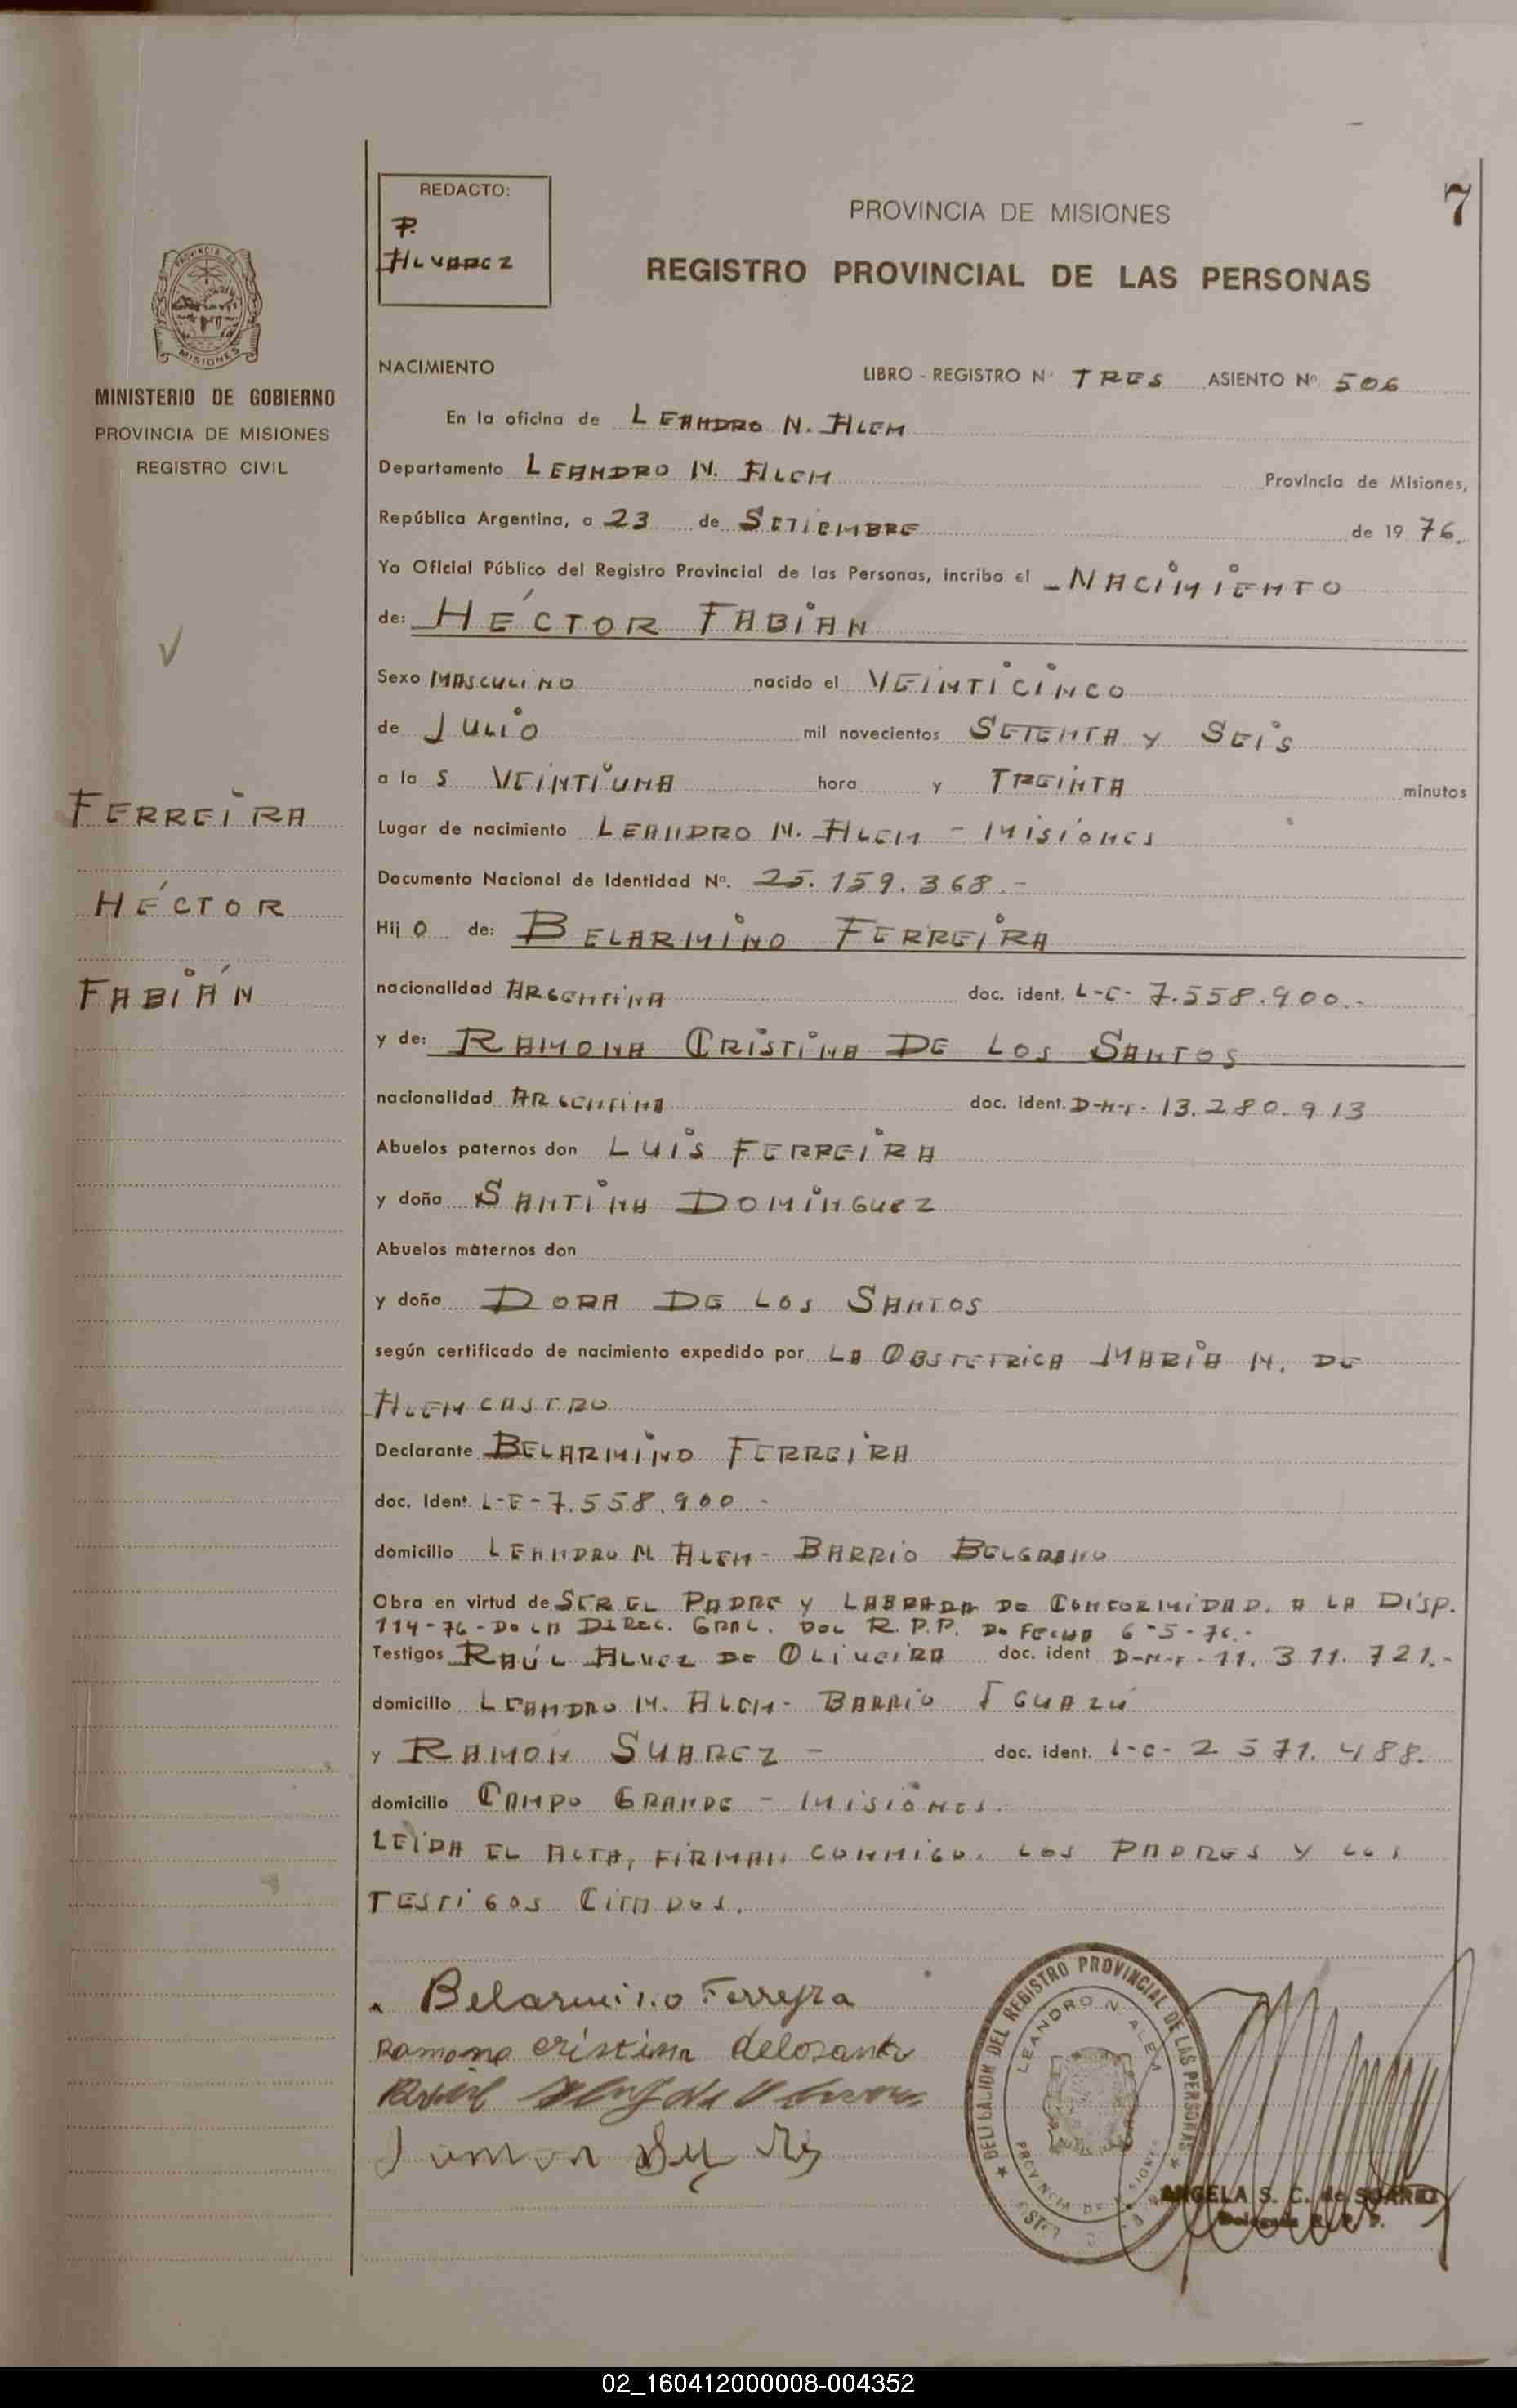 REDACTO:
P.
ALVAREZ
PROVINCIA DE MISIONES
7
REGISTRO PROVINCIAL DE LAS PERSONAS
PROVINCIA DE
MISIONES
MINISTERIO DE GOBIERNO
PROVINCIA DE MISIONES
REGISTRO CIVIL
FERREIRA
HÉCTOR
FABIÁN
NACIMIENTO
LIBRO - REGISTRO Nº TRES ASIENTO Nº 506
En la oficina de LEANDRO N. ALEM
Departamento LEANDRO N. ALEM Provincia de Misiones,
República Argentina, a 23 de SETIEMBRE de 1976.
Yo Oficial Público del Registro Provincial de las Personas, incribo el NACIMIENTO
de: HÉCTOR FABIAN
Sexo MASCULINO nacido el VEINTICINCO
de JULIO mil novecientos SETENTA Y SEIS
a la S VEINTIUNA hora y TREINTA minutos
Lugar de nacimiento LEANDRO N. ALEM - MISIONES
Documento Nacional de Identidad Nº. 25.159.368.-
Hij O de: BELARMINO FERREIRA
nacionalidad ARGENTINA doc. ident. L-E- 7.558.900.-
y de: RAMONA CRISTINA DE LOS SANTOS
nacionalidad ARGENTINA doc. ident. D-N-I- 13.280.913
Abuelos paternos don LUIS FERREIRA
y doña SANTINA DOMINGUEZ
Abuelos maternos don
y doña DORA DE LOS SANTOS
según certificado de nacimiento expedido por LA OBSTETRICA MARIA N. DE
ALEMCASTRO
Declarante BELARMINO FERREIRA
doc. Ident. L-E-7.558.900.-
domicilio LEANDRO N. ALEM - BARRIO BELGRANO
Obra en virtud de SER EL PADRE Y LABRADA DE CONFORMIDAD. A LA DISP.
114-76-DE LA DIREC. GRAL. DEL R.P.P. DE FECHA 6-5-76.-
Testigos RAÚL ALVEZ DE OLIVEIRA doc. ident D-N-I-11.311.721.-
domicilio LEANDRO N. ALEM- BARRIO IGUAZÚ
y RAMÓN SUAREZ - doc. ident. L-E- 2.571.488.
domicilio CAMPO GRANDE - MISIONES.
LEIDA EL ACTA, FIRMAN CONMIGO. LOS PADRES Y LOS
TESTIGOS CITADOS.
Belarmino Ferreyra
Ramona cristina delosanto
DELEGACION DEL REGISTRO PROVINCIAL DE LAS PERSONAS
LEANDRO N. ALEM
PROVINCIA DE MISIONES
ANGELA S. C. de SUAREZ
Delegada R. P. P.
02_160412000008-004352